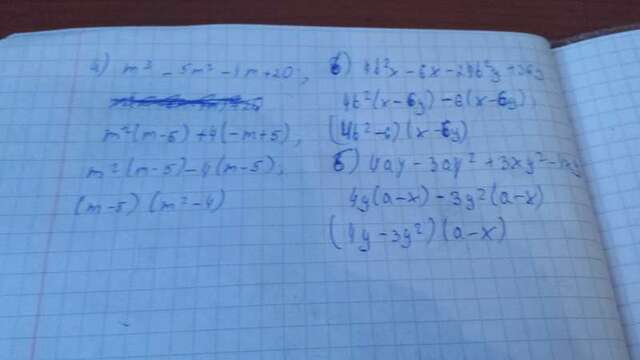 a) m³ - 5m² - 4m + 20;
m²(m-5) + 4(-m+5),
m²(m-5) - 4(m-5);
(m-5) (m²-4)
в) 4b²x - 6x - 24b²y + 36y
4b²(x-6y) - 6(x-6y)
(4b²-6)(x-6y)
б) 4ay - 3ay² + 3xy² -
4y(a-x) - 3y²(a-x)
(4y-3y²)(a-x)